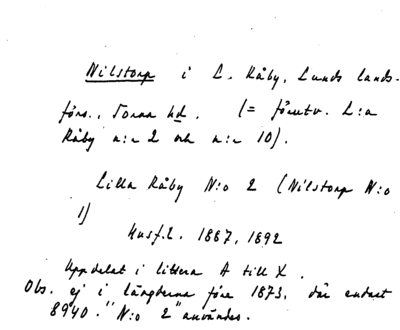 Nilstorp i L. Råby, Lunds lands-
förs., Torna hd. (= förutv. L:a
Råby n:r 2 och n:r 10).
Lilla Råby N:o 2 (Nilstorp N:o
1)
Husf.l. 1887, 1892
Uppdelat i littera A till X.
Obs. ej i längderna före 1873, där endast
8940. "N:o 2" användes.